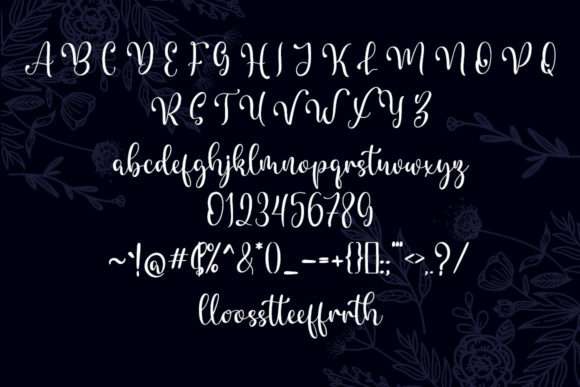 A B C D E F G H I J K L M N O P Q
R S T U V W X Y Z
abcdefghijklmnopqrstuvwxyz
0123456789
~`!@#$%^&*()_-=+{}[]:;"'<>,.?/
lloosstteeffrrth